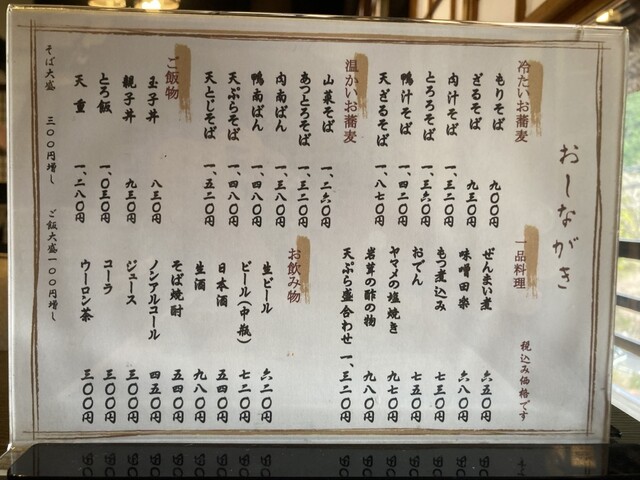 おしながき
税込み価格です
冷たいお蕎麦
もりそば 九〇〇円
ざるそば 九三〇円
肉汁そば 一、三二〇円
とろろそば 一、三六〇円
鴨汁そば 一、四二〇円
天ざるそば 一、八七〇円
温かいお蕎麦
山菜そば 一、二六〇円
あつとろそば 一、三二〇円
肉南ばん 一、三八〇円
鴨南ばん 一、四八〇円
天ぷらそば 一、四八〇円
天とじそば 一、五二〇円
ご飯物
玉子丼 八三〇円
親子丼 九三〇円
とろ飯 一、〇三〇円
天重 一、二八〇円
そば大盛 三〇〇円増し
ご飯大盛一〇〇円増し
一品料理
ぜんまい煮 六五〇円
味噌田楽 六八〇円
もつ煮込み 七三〇円
おでん 七五〇円
ヤマメの塩焼き 九七〇円
岩茸の酢の物 九八〇円
天ぷら盛合わせ 一、三二〇円
お飲み物
生ビール 六二〇円
ビール(中瓶) 七二〇円
日本酒 五四〇円
生酒 九八〇円
そば焼酎 五四〇円
ノンアルコール 四五〇円
ジュース 三〇〇円
コーラ 三〇〇円
ウーロン茶 三〇〇円